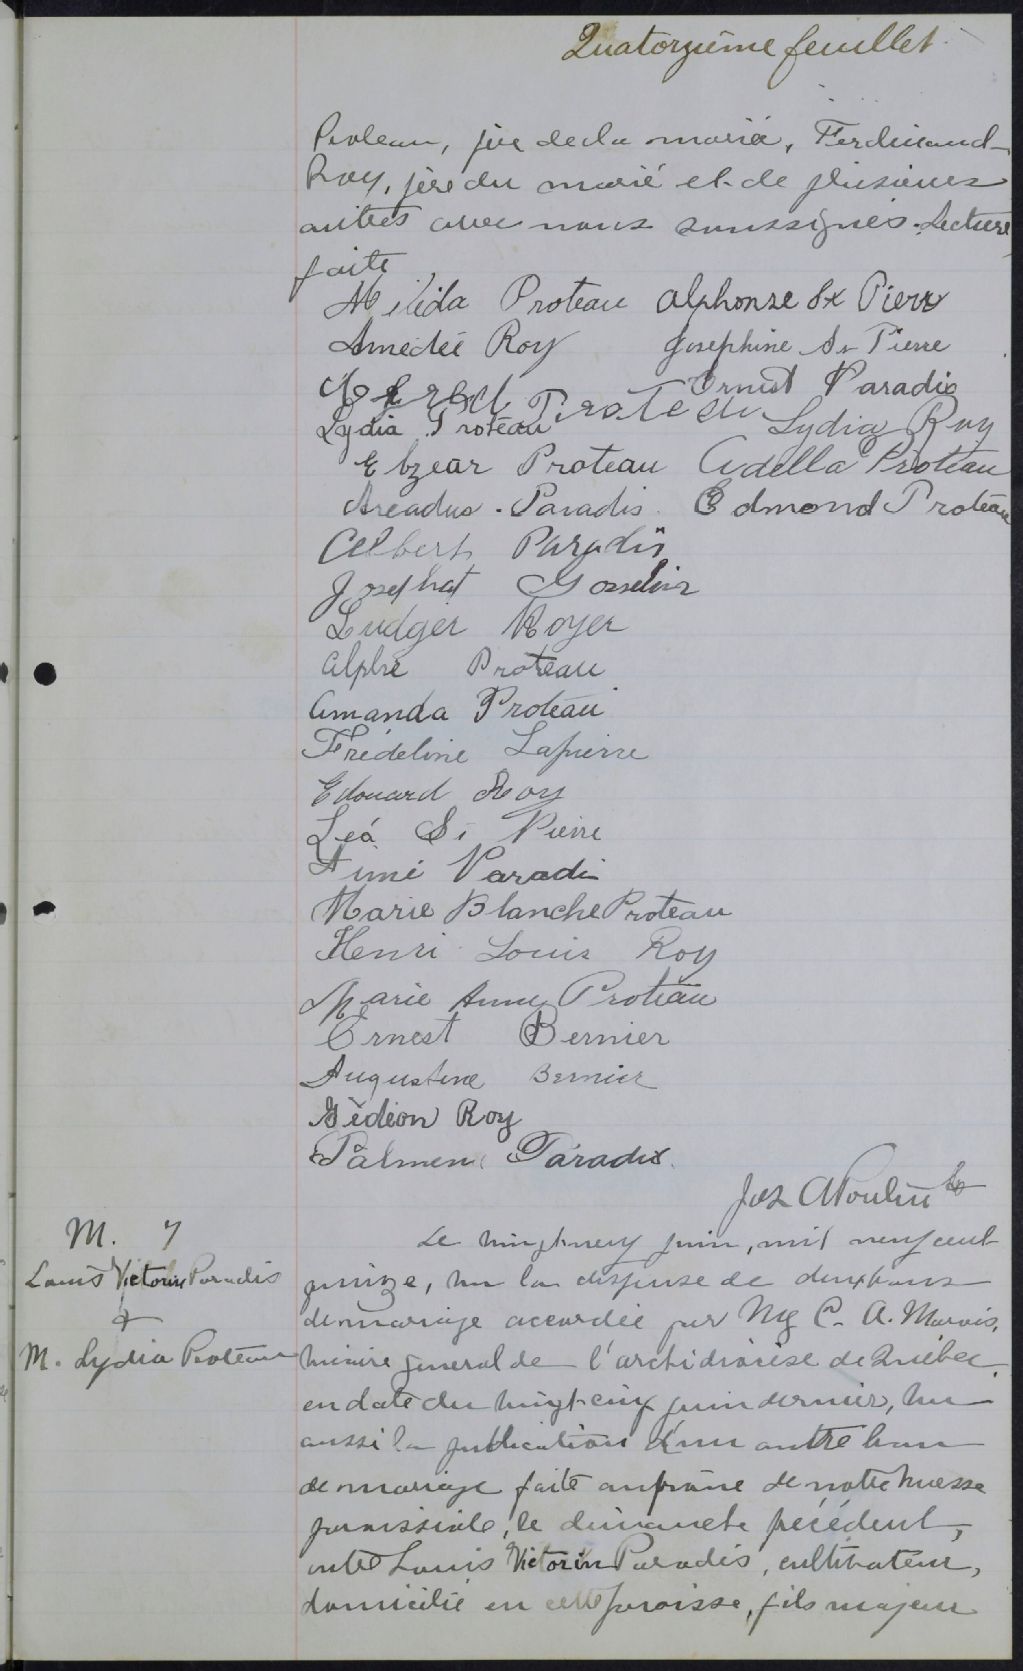 Quatorzième feuillet
Proteau, père de la mariée, Ferdinand
Roy, père du marié et de plusieurs
autres avec nous soussignés. Lecture
faite
Mélida Proteau Alphonse St Pierre
Amedée Roy Josephine St Pierre
Alfred Proteau Ernest Paradis
Lydia Proteau Lydia Roy
Elzear Proteau Adella Proteau
Arcadus Paradis Edmond Proteau
Albert Paradis
Josephat Gosselin
Ludger Royer
Alphre Proteau
Amanda Proteau
Frédeline Lapierre
Edouard Roy
Léá St Pierre
Aimé Paradis
Marie Blanche Proteau
Henri Louis Roy
Marie Anne Proteau
Ernest Bernier
Augustine Bernier
Gédéon Roy
Palmen Paradis
Jos A Poulin
M. 7
Louis Victorin Paradis
&
M. Lydia Proteau
Le vingt neuf juin, mil neuf cent
quinze, vu la dispense de deux bans
de mariage accordée par Mg C. A. Marois,
vicaire general de l'archidiocèse de Québec
en date du vingt-cinq juin dernier, vu
aussi la publication d'un autre ban
de mariage faite au prône de notre messe
paroissiale, le dimanche précédent,
entre Louis Victorin Paradis, cultivateur,
domicilié en cette paroisse, fils majeur